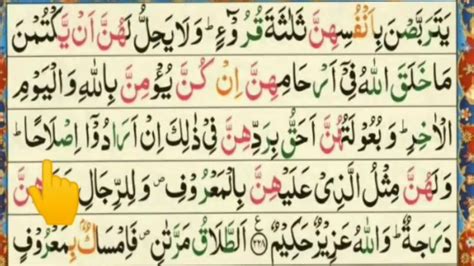 يَتَرَبَّصْنَ بِاَنْفُسِهِنَّ ثَلٰثَةَ قُرُوْٓءٍ ؕ وَلَا يَحِلُّ لَهُنَّ اَنْ يَّكْتُمْنَ
مَا خَلَقَ اللّٰهُ فِيْٓ اَرْحَامِهِنَّ اِنْ كُنَّ يُؤْمِنَّ بِاللّٰهِ وَالْيَوْمِ
الْاٰخِرِ ؕ وَبُعُوْلَتُهُنَّ اَحَقُّ بِرَدِّهِنَّ فِيْ ذٰلِكَ اِنْ اَرَادُوْٓا اِصْلَاحًا ؕ
وَلَهُنَّ مِثْلُ الَّذِيْ عَلَيْهِنَّ بِالْمَعْرُوْفِ ۪ وَلِلرِّجَالِ عَلَيْهِنَّ
دَرَجَةٌ ؕ وَاللّٰهُ عَزِيْزٌ حَكِيْمٌ ﴿۲۲۸﴾ اَلطَّلَاقُ مَرَّتٰنِ ۪ فَاِمْسَاكٌۢ بِمَعْرُوْفٍ